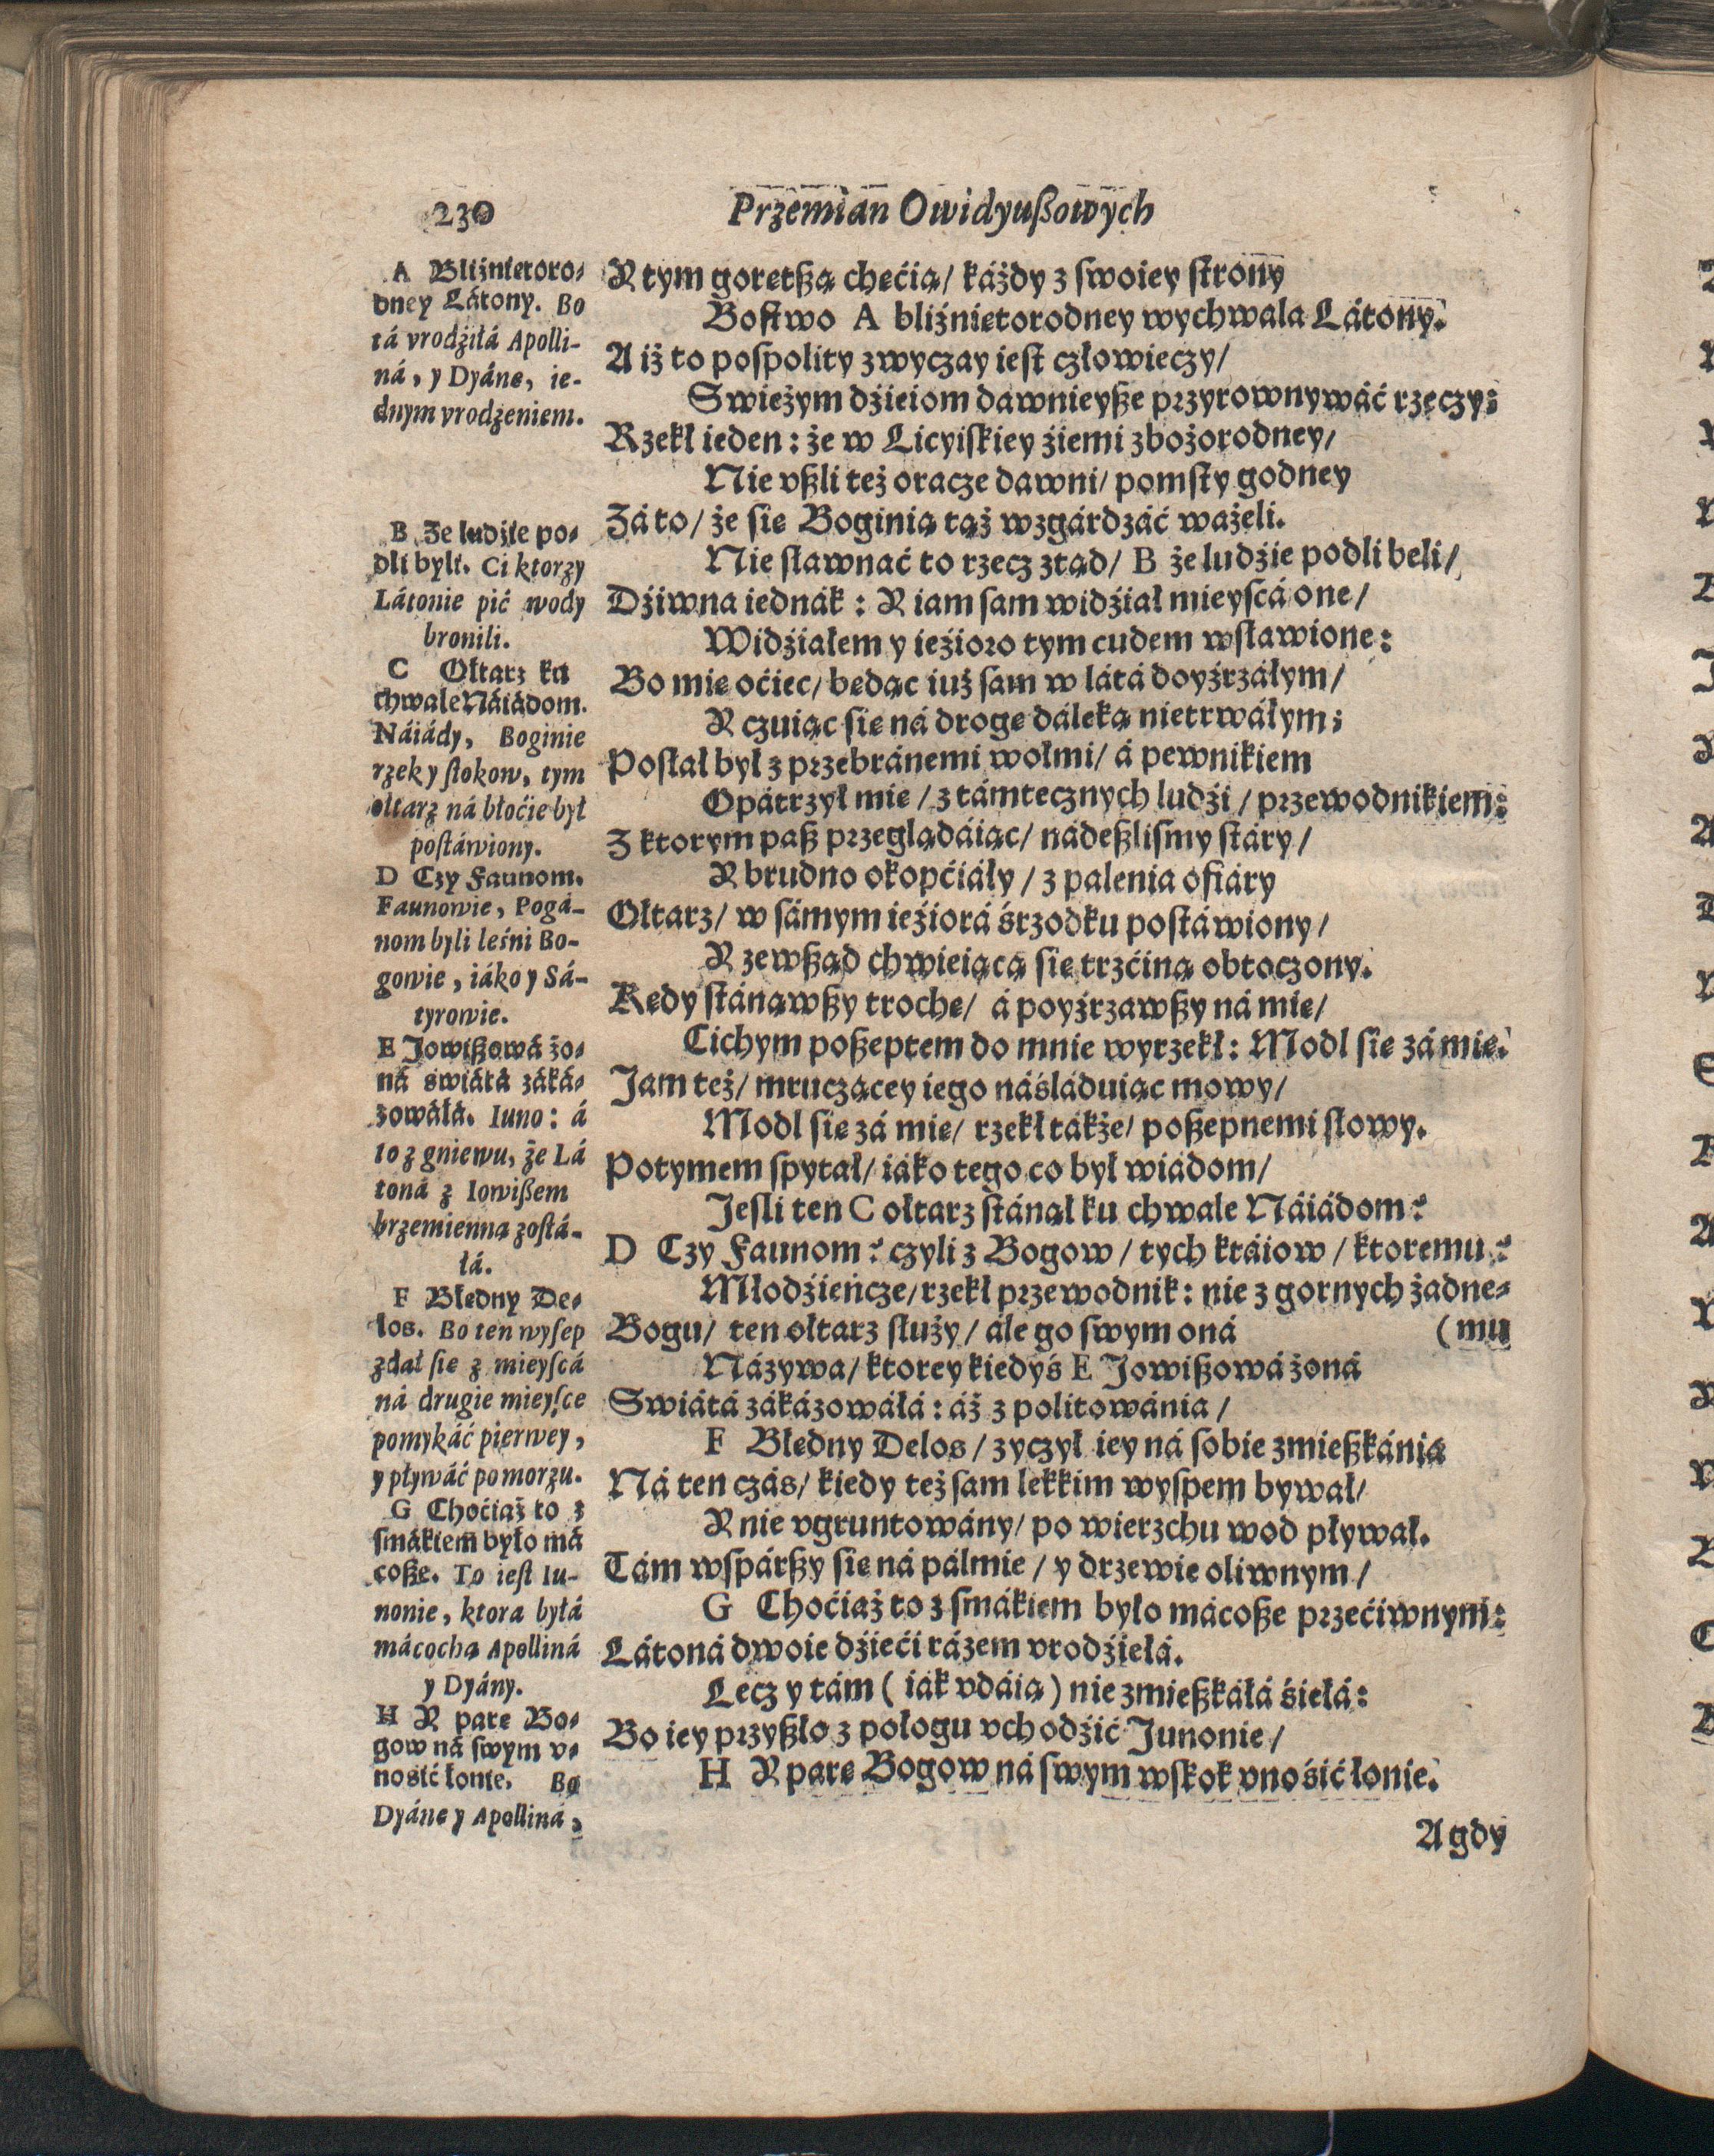 230
Przemian Owidyußowych
A Bliźnietoro⸗
dney Látony. Bo
tá vrodźiłá Apolli-
ná, y Dyáne, ie-
dnym vrodzeniem.
B Że ludźie po⸗
dli byli. Ci ktorzy
Látonie pić wody
bronili.
C Ołtarz ku
chwale Náiádom.
Náiády, Boginie
rzek y stokow, tym
ołtarz ná błoćie był
postáwiony.
D Czy Faunom.
Faunowie, Pogá-
nom byli leśni Bo-
gowie, iáko y Sá-
tyrowie.
E Jowißowá żo⸗
ná świátá záká⸗
zowáłá. Iuno: á
to z gniewu, że Lá
toná z Iowißem
brzemienną zostá-
łá.
F Błedny De⸗
los. Bo ten wyſep
zdał ſie z mieyſcá
ná drugie mieyſce
pomykáć pierwey,
y pływáć po morzu.
G Choćiaż to z
ſmákiem było má
coße. To iest Iu-
nonie, ktora byłá
mácochą Apolliná
y Dyány.
H Y parę Bo⸗
gow ná ſwym v⸗
nosić łonie. Bo
Dyánę y Apolliná,
Y tym goretßą chęćią/ káżdy z ſwoiey ſtrony
Boſtwo A bliźniętorodney wychwala Látony.
A iż to poſpolity zwyczay ieſt człowieczy/
Swieżym dźieiom dawnieyße przyrownywáć rzeczy:
Rzekł ieden: że w Licyiſkiey źiemi zbożorodney/
Nie vßli też oracze dawni/ pomſty godney
Zá to/ że ſie Boginią tąż wzgárdzáć ważeli.
Nie ſławnać to rzecz ztąd/ B że ludźie podli beli/
Dźiwna iednák: Y iam ſam widźiał mieyſcá one/
Widźiałem y ieźioro tym cudem wſławione:
Bo mię oćiec/ będąc iuż ſam w látá doyźrzáłym/
Y czuiąc ſię ná drogę dáleką nietrwáłym;
Poſłał był z przebránemi wołmi/ á pewnikiem
Opátrzył mię/ z támtecznych ludźi/ przewodnikiem:
Z ktorym paß przeglądáiąc/ nádeßliſmy ſtáry/
Y brudno okopćiáły/ z palenia ofiáry
Ołtarz/ w ſámym ieźiorá śrzodku poſtáwiony/
Y zewßąd chwieiącą ſię trzćiną obtoczony.
Kędy ſtánąwßy trochę/ á poyźrzawßy ná mię/
Cichym poßeptem do mnie wyrzekł: Modl ſię zá mię.
Jam też/ mruczącey iego náśláduiąc mowy/
Modl ſię zá mię/ rzekł tákże/ poßepnemi ſłowy.
Potymem ſpytał/ iáko tego co był wiádom/
Jeſli ten C ołtarz ſtánął ku chwale Náiádom?
D Czy Faunom? czyli z Bogow/ tych kráiow/ ktoremu?
Młodźieńcze/ rzekł przewodnik: nie z gornych żadne⸗
Bogu/ ten ołtarz służy/ ále go ſwym oná (mu
Názywa/ ktorey kiedyś E Jowißowá żoná
Swiátá zákázowáłá: áż z politowánia/
F Błędny Delos/ zyczył iey ná ſobie zmießkánia
Ná ten czás/ kiedy też ſam lekkim wyſpem bywał/
Y nie vgruntowány/ po wierzchu wod pływał.
Tám wſpárßy ſię ná pálmie/ y drzewie oliwnym/
G Choćiaż to z ſmákiem było mácoße przećiwnym:
Látoná dwoie dźieći rázem vrodźiełá.
Lecz y tám (iák vdáią) nie zmießkáłá śiełá:
Bo iey przyßło z połogu vchodźić Junonie/
H Y parę Bogow ná ſwym wſkok vnośić łonie.
A gdy